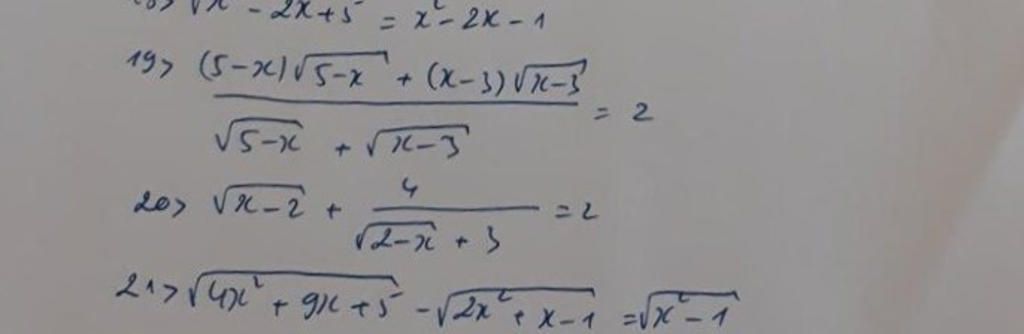 √x² - 2x + 5 = x² - 2x - 1
19> (5-x)√(5-x) + (x-3)√(x-3) / √(5-x) + √(x-3) = 2
20> √(x-2) + 4 / √(2-x) + 3 = 2
21> √(4x² + 9x + 5) - √(2x² + x - 1) = √(x² - 1)